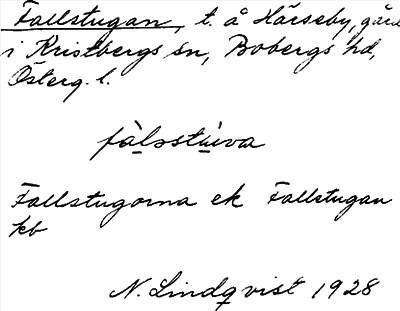 Fallstugan, t. å Härseby, gård
i Kristbergs sn, Bobergs hd,
Österg. l.
fàlsstùiva
Fallstugorna ek Fallstugan
kb
N. Lindqvist 1928